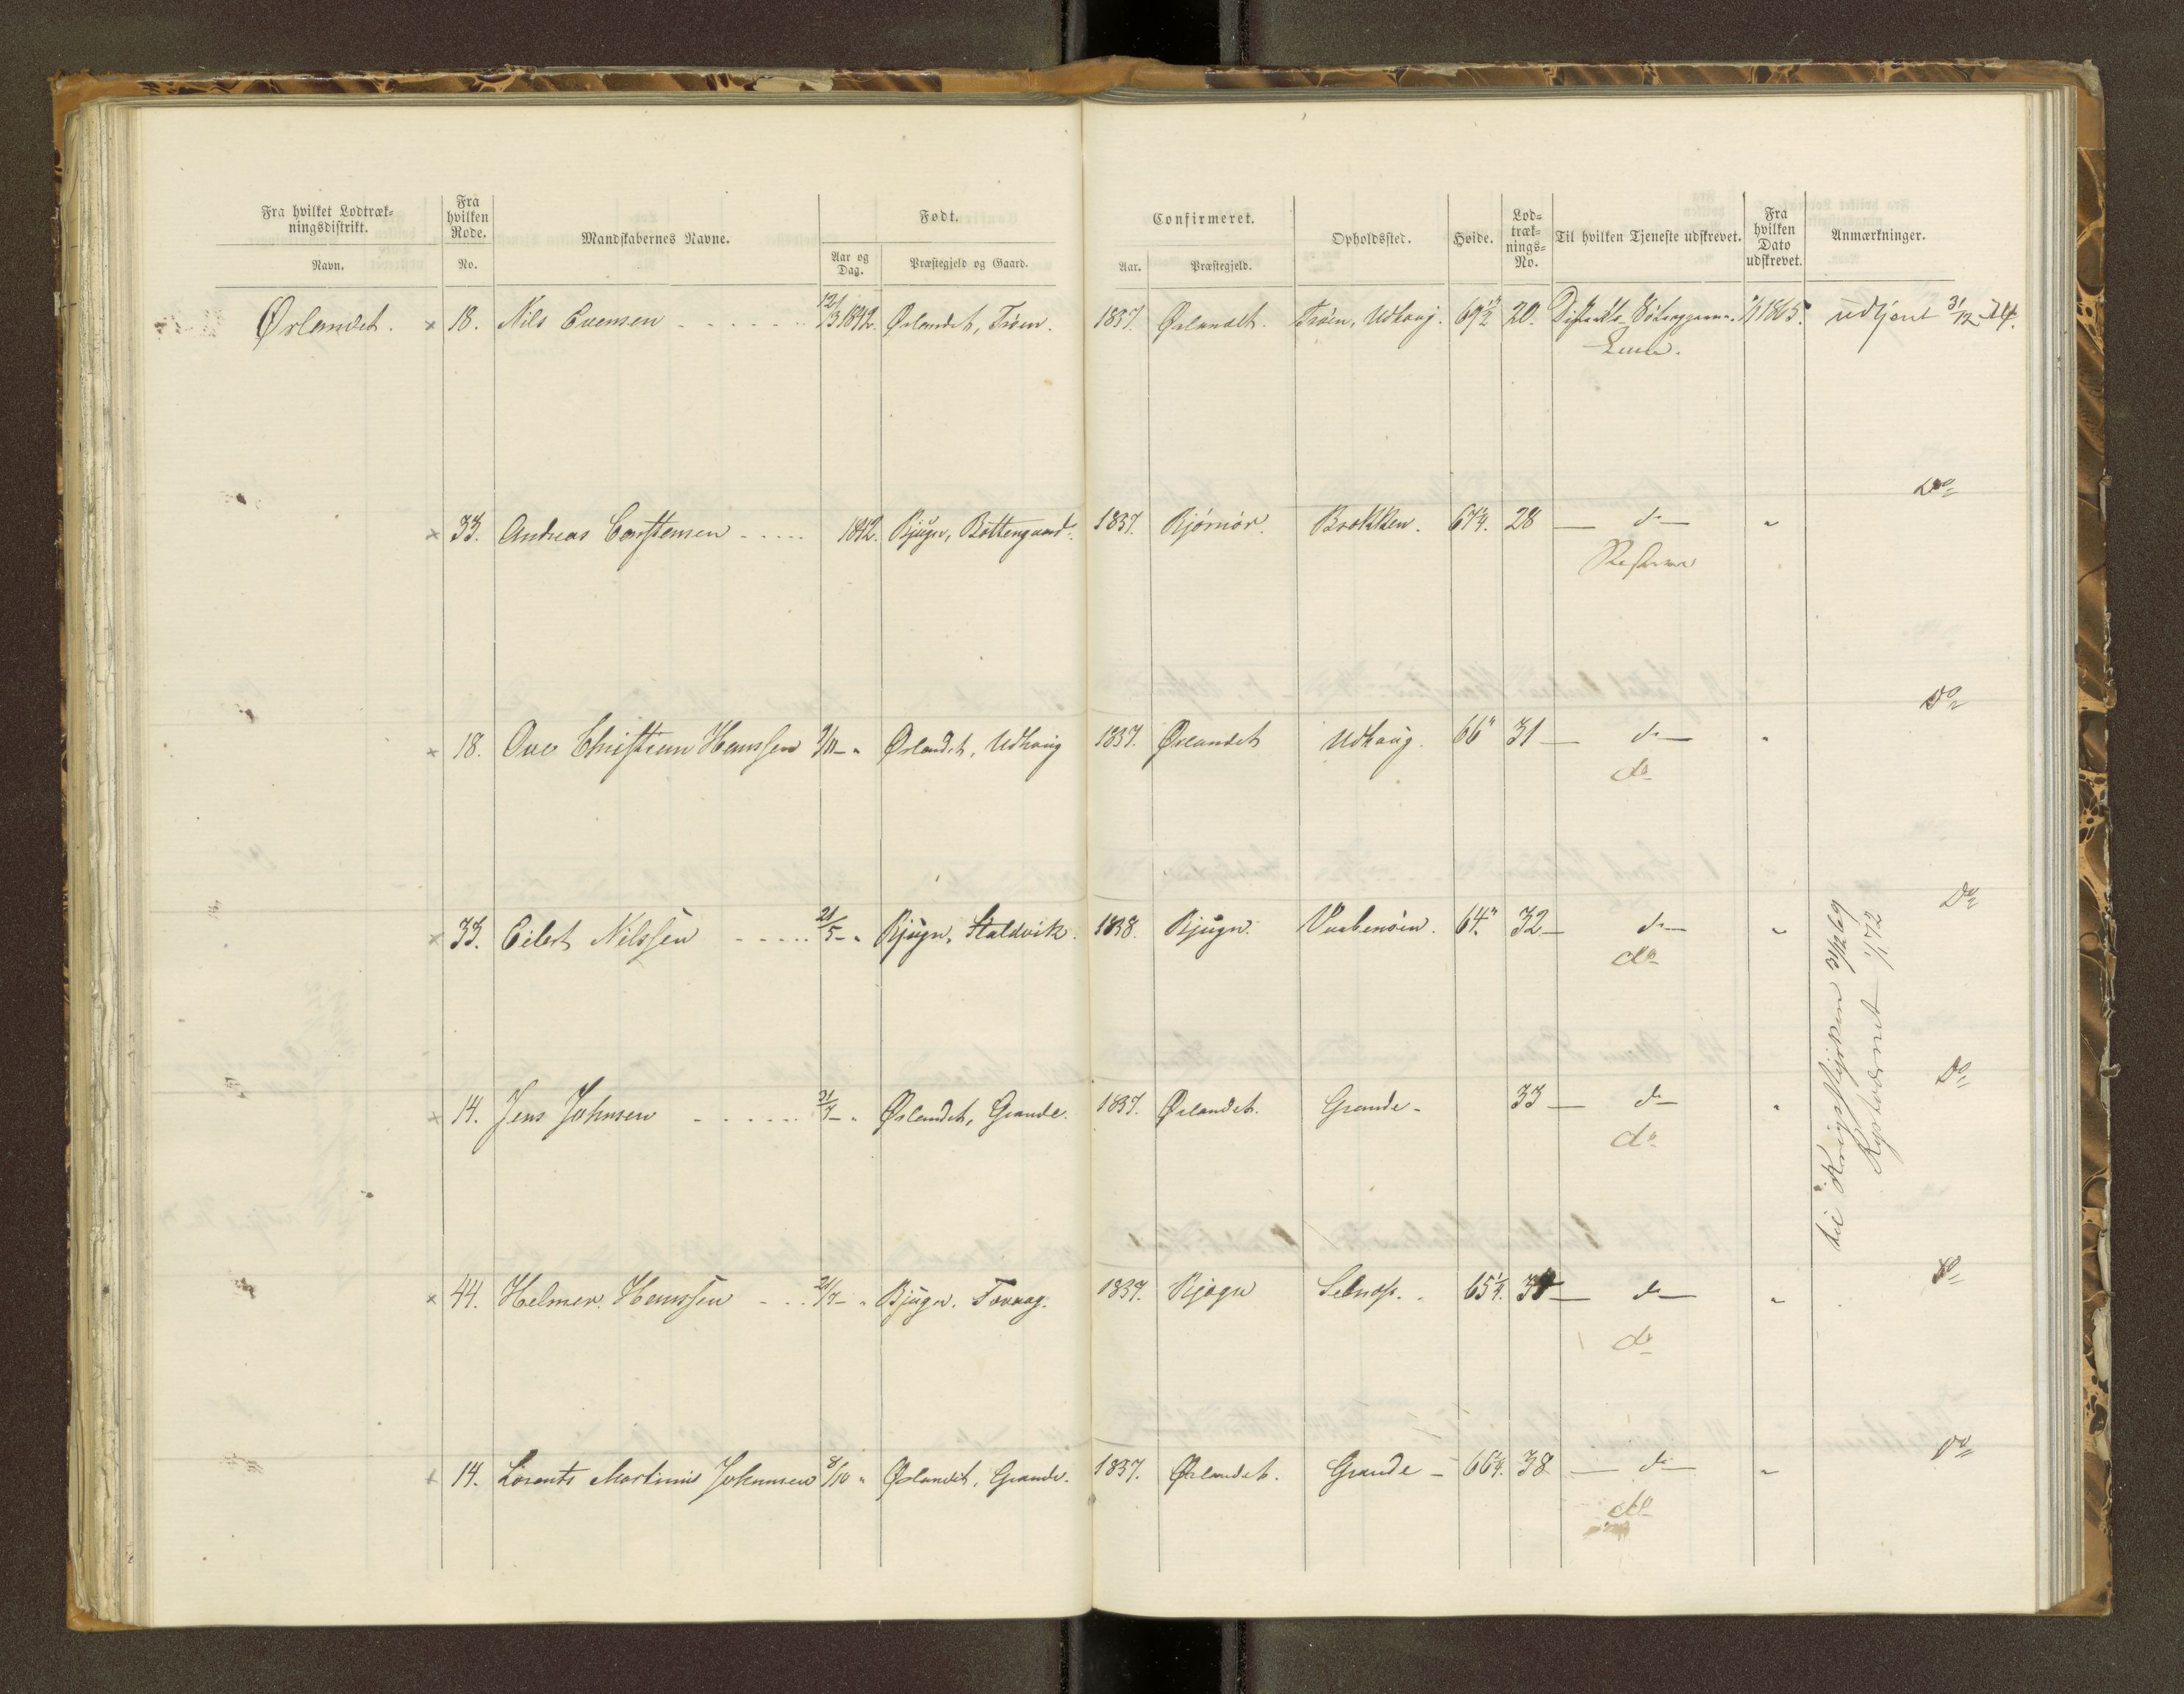 Fra hvilket Lodtræk-
ningsdistrikt.
Navn.
Fra
hvilken
Rode.
No.
Mandskabernes Navne.
Født.
Aar og
Dag.
Præstegjeld og Gaard.
Confirmeret.
Aar.
Præstegjeld.
Opholdssted.
Høide.
Lod-
træk-
nings-
No.
Til hvilken Tjeneste udskrevet.
Fra
hvilken
Dato
udskrevet.
Anmærkninger.
Ørlandet. × 18. Nils Evensen 12/3 1842. Ørlandet, Trøen. 1857. Ørlandet. Trøen, Udhaug. 69½" 20. Distrikts 1/1 1865. udtjent 31/12 74.
× 33. Andreas Carstensen 1842. Bjugn, Bottengaard. 1857. Bjørnør. Brækken. 67¼. 28 — d — " Do
Reserve
× 18. Ove Christian Hanssen 9/11 — " Ørlandet, Udhaug 1857. Ørlandet Udhaug. 66" 31 — d — " Do
do
× 33. Eilert Nilssen 21/5 — " Bjugn, Staldvik. 1858. Bjugn. 64" 32 — d — " Do
do
× 14. Jens Johnsen 31/7 — " Ørlandet, Grande. 1857. Ørlandet. Grande — 33 — d — " Do
do
× 44. Helmer Hanssen 21/7 — " Bjugn, 1857. Bjugn 65¼. — d — " Do
do
× 14. Lorents Martinus Johannsen 8/10 " Ørlandet, Grande. 1857. Ørlandet. Grande — 66¼. 38 — d — " Do
do
til Krigsstyrken 31/12 69
Kystværnet 1/1 72